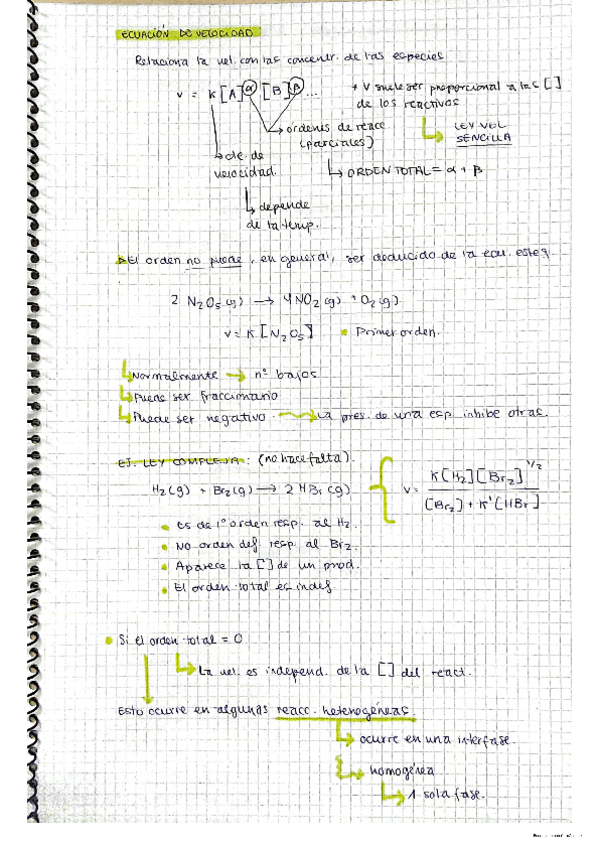 ECUACIÓN DE VELOCIDAD
Relaciona la vel. con las concentr. de las especies
v = K[A]^α [B]^β ...
+ V suele ser proporcional a las [ ]
de los reactivos
LEY VEL
SENCILLA
ordenes de reacc
(parciales)
ORDEN TOTAL = α + β
cte. de
velocidad.
depende
de la temp.
El orden no puede, en general, ser deducido de la ecu. esteq.
2 N2O5 (g) → 4NO2 (g) + O2(g)
v = K[N2O5] • Primer orden.
Normalmente → nº bajos
Puede ser fraccionario
Puede ser negativo → La pres. de una esp. inhibe otras.
EJ. LEY COMPLEJA: (no hace falta).
H2(g) + Br2(g) → 2 HBr (g)
v = K[H2][Br2]^1/2 / [Br2] + K'[HBr]
• Es de 1º orden resp. al H2.
• No orden def. resp. al Br2.
• Aparece la [ ] de un prod.
• El orden total es indef.
• Si el orden total = 0
La vel. es independ. de la [ ] del react.
Esto ocurre en algunas reacc. heterogéneas.
ocurre en una interfase.
homogénea
1 sola fase.